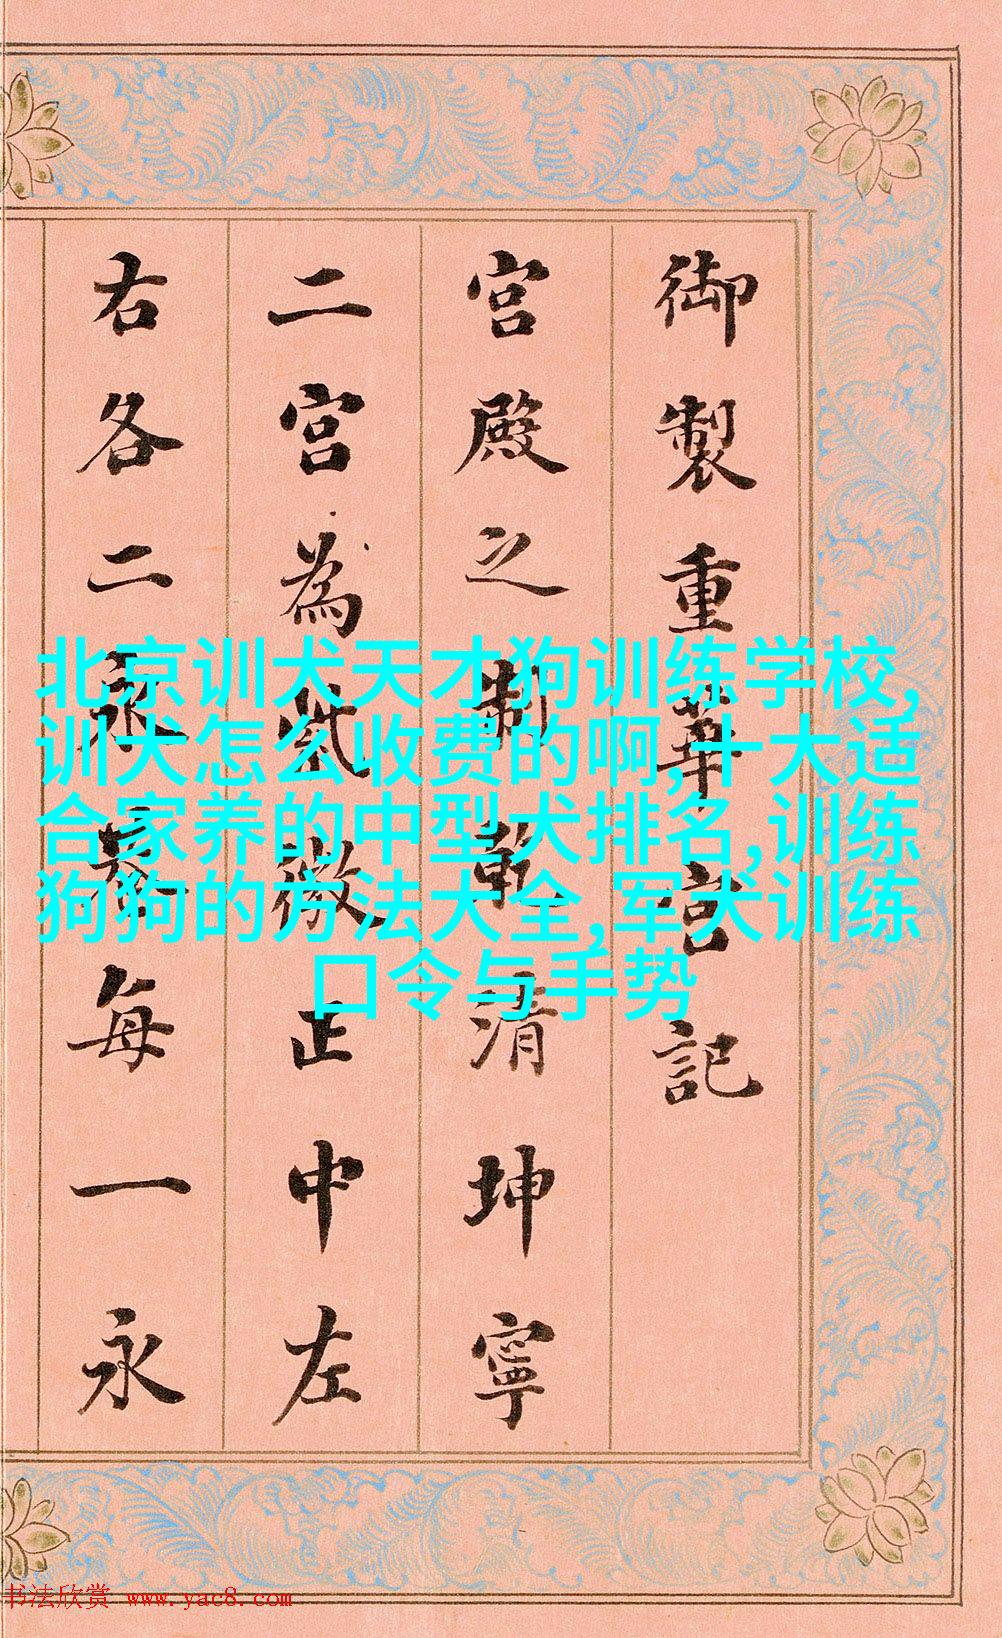 御製重華宮記
宮殿之制乾清坤寧
二宮為紫微正中左
右各二永巷每一永
北京训犬天才狗训练学校,
训犬怎么收费的啊,十大适
合家养的中型犬排名,训练
狗狗的方法大全,军犬训练
口令与手势
书法欣赏 www.yac8.com